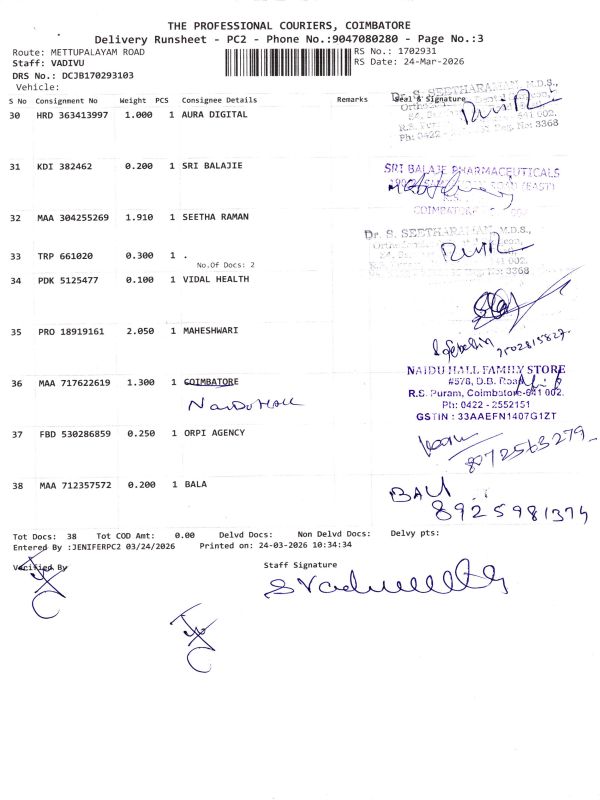 THE PROFESSIONAL COURIERS, COIMBATORE
Delivery Runsheet - PC2 - Phone No.:9047080280 - Page No.:3
Route: METTUPALAYAM ROAD
RS No.: 1702931
Staff: VADIVU
RS Date: 24-Mar-2026
DRS No.: DCJB170293103
Vehicle:
S No Consignment No Weight PCS Consignee Details Remarks Seal & Signature
30 HRD 363413997 1.000 1 AURA DIGITAL
Dr. S. SEETHARAMAN, M.D.S.,
Reg. No: 3368
31 KDI 382462 0.200 1 SRI BALAJIE
SRI BALAJE PHARMACEUTICALS
(EAST)
COIMBATORE
32 MAA 304255269 1.910 1 SEETHA RAMAN
Dr. S. SEETHARAMAN, M.D.S.,
No: 3368
33 TRP 661020 0.300 1 .
No.Of Docs: 2
34 PDK 5125477 0.100 1 VIDAL HEALTH
35 PRO 18919161 2.050 1 MAHESHWARI
36 MAA 717622619 1.300 1 COIMBATORE
Naidu Hall
NAIDU HALL FAMILY STORE
#578, D.B. Road,
R.S. Puram, Coimbatore-641 002.
Ph: 0422 - 2552151
GSTIN : 33AAEFN1407G1ZT
37 FBD 530286859 0.250 1 ORPI AGENCY
8072563279
38 MAA 712357572 0.200 1 BALA
BALA
8925981374
Tot Docs: 38 Tot COD Amt: 0.00 Delvd Docs: Non Delvd Docs: Delvy pts:
Entered By :JENIFERPC2 03/24/2026 Printed on: 24-03-2026 10:34:34
Verified By
Staff Signature